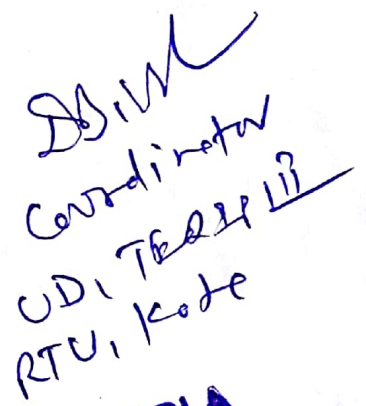 Coordinator
UD, TEQIP III
RTU, Kota